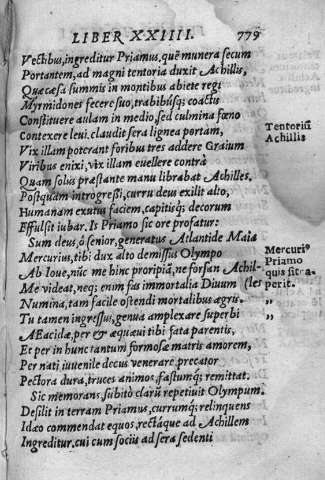 LIBER XXIIII. 779
Vectibus, ingreditur Priamus, quẽ munera secum
Portantem, ad magni tentoria duxit Achillis,
Quæ cæsa summis in montibus abiete regi
Myrmidones fecere suo, trabibusq; coactis
Constituere aulam in medio, sed culmina fœno
Contexere leui. claudit sera lignea portam,
Tentoriũ
Achillis
Vix illam poterant foribus tres addere Graium
Viribus enixi, vix illam euellere contrà
Quam solus præstante manu librabat Achilles.
Postquàm introgressi, curru deus exilit alto,
Humanam exutus faciem, capitisq; decorum
Effulsit iubar. Is Priamo sic ore profatur:
Sum deus, ô senior, generatus Atlantide Maia
Mercurius, tibi dux alto demissus Olympo
Ab Ioue, nũc me hinc propripiã, ne forsan Achil-
Me videat, neq; enim fas immortalia Diuum (les
Mercuriꝰ
Priamo
quis sit a-
perit.
Numina, tam facile ostendi mortalibus ægris. „
Tu tamen ingressus, genua amplexare superbi „
AEacidæ, per & æquæui tibi fata parentis,
Et per in hunc tantum formosæ matris amorem,
Per nati iuuenile decus venerare, precator
Pectora dura, truces animos, fastumq; remittat.
Sic memorans, subitò clarũ repetiuit Olympum.
Desilit in terram Priamus, currumq; relinquens
Idæo commendat equos, rectàque ad Achillem
Ingreditur, cui cum socius ad sera sedenti